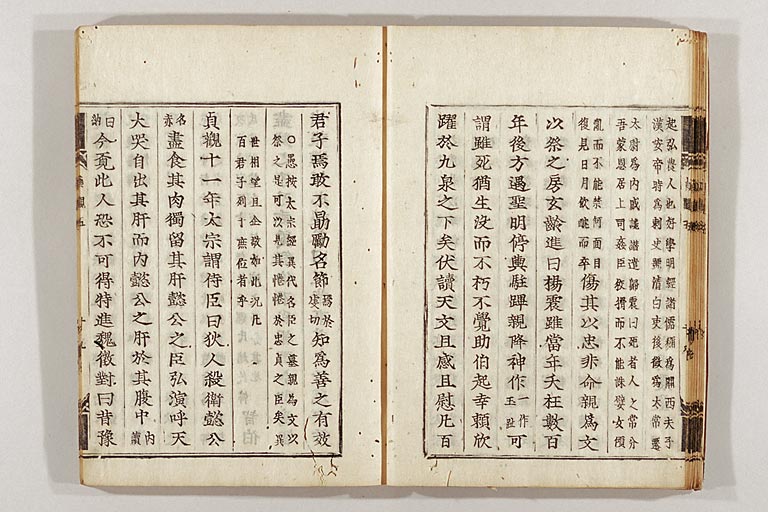 起弘農人也好學明經諸儒稱為關西夫子
漢安帝時為刺史稱清白吏後徵為太常遷
太尉為內戚譖遣歸震曰死者人之常分
吾蒙恩居上司姦臣狡猾而不能誅嬖女傾
亂而不能禁何面目
復見日月飲酖而卒
傷其以忠非命親為文
以祭之房玄齡進曰楊震雖當年夭枉數百
年後方遇聖明停輿駐蹕親降神作一作玉趾可
謂雖死猶生沒而不朽不覺助伯起幸賴欣
躍於九泉之下矣伏讀天文且感且慰凡百
君子焉敢不勗勵名節切知為善之有效
○愚按太宗經異代名臣之墓親為文以
祭之是可以見其惓惓於忠貞之臣矣異
世相望且企敬如此況凡
百君子列于庶位者乎
貞觀十一年太宗謂侍臣曰狄人殺衛懿公
名赤盡食其肉獨留其肝懿公之臣弘演呼天
大哭自出其肝而內懿公之肝於其腹中內讀
曰納今覓此人恐不可得特進魏徵對曰昔豫